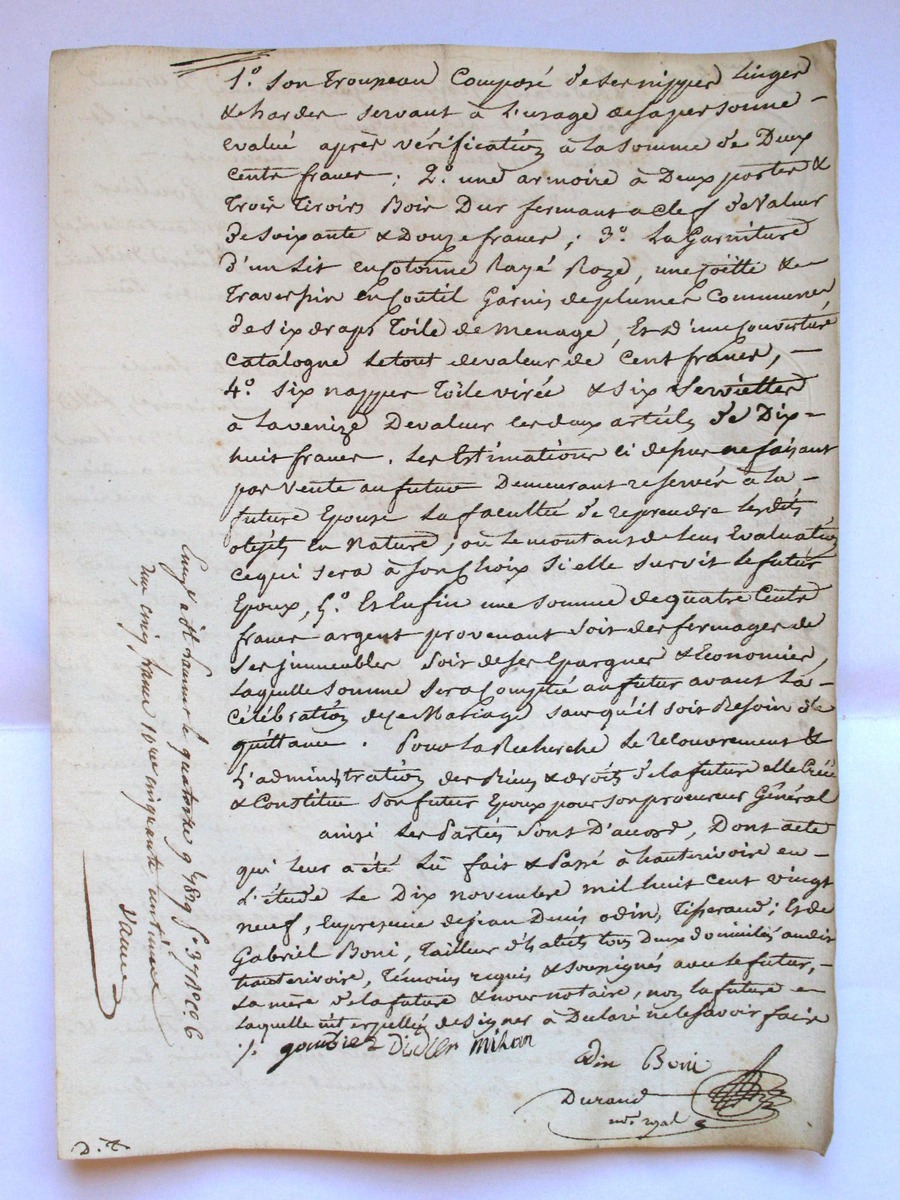 1.o Son Troupeau Composé de ses nippes Linges
& hardes servant à L'usage de sa personne
evalué après vérification à la Somme de Deux
Cents francs ; 2.o une armoire à Deux portes &
Trois Tiroirs Bois Dur fermant a clef de Valeur
de soixante & Douze francs ; 3.o La Garniture
d'un Lit en Cotonne Rayé Roze, une Coëtte &
Traverpin en Coutil Garnis de plumes Communes
de six draps Toile de menage, Et d'une Couverture
Catalogne Le tout de valeur de Cent francs,
4.o Six nappes Toile virée & six Serviettes
à la venize De valeur ces deux articles de Dix-
huit francs. Les Estimations ci dessus ne faisant
pas vente au futur Demeurant reservée à la
future Epouse La faculté de reprendre Les dits
objets En Nature, ou Le montant de Leur Evaluation
ce qui sera à Son Choix Si elle survit Le futur
Epoux, 5.o Et Enfin une Somme de quatre Cents
francs argent provenant Soit des fermages de
Ses immeubles Soit de Ses Epargnes & Economies,
Laquelle Somme Sera Comptée au futur avant La
célébration de ce Mariage sans qu'il soit Besoin de
quittance. Pour La Recherche Le recouvrement &
L'administration des Biens & droits de la future elle Crée
& Constitue Son futur Epoux pour son procureur Général
ainsi Les Parties Sont D'accord, Dont acte
qui leur a été Lu fait & Passé à hauterivoire en
L'étude Le Dix novembre mil huit cent vingt
neuf, En presence de jean Denis odin, Tisserand; Et de
Gabriel Boni, Tailleur d'habits tous Deux domiciliés audit
hauterivoire, Témoins requis & soussignés avec Le futur,
La mère de la future & nous notaire, non La future
Laquelle interpellée de signer à Déclaré ne le savoir faire
Didier
odin Boni
Durand
no.re royal
Enregt. à St Laurent le quatorze 9bre 1829 fo. 37 Ro Co 6
Reçu cinq francs 10me cinquante centimes